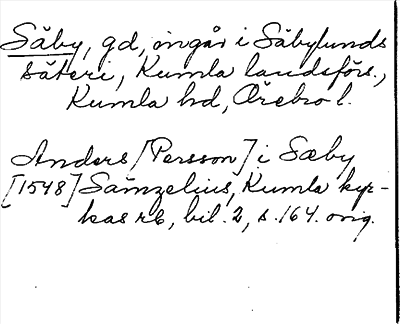 Säby, gd, ingår i Säbylunds
säteri, Kumla landsförs.,
Kumla hd, Örebro l.
Anders [Persson] i Sæby
[1548] Sämzelius, Kumla kyr-
kas rb, bil. 2, s. 164. orig.